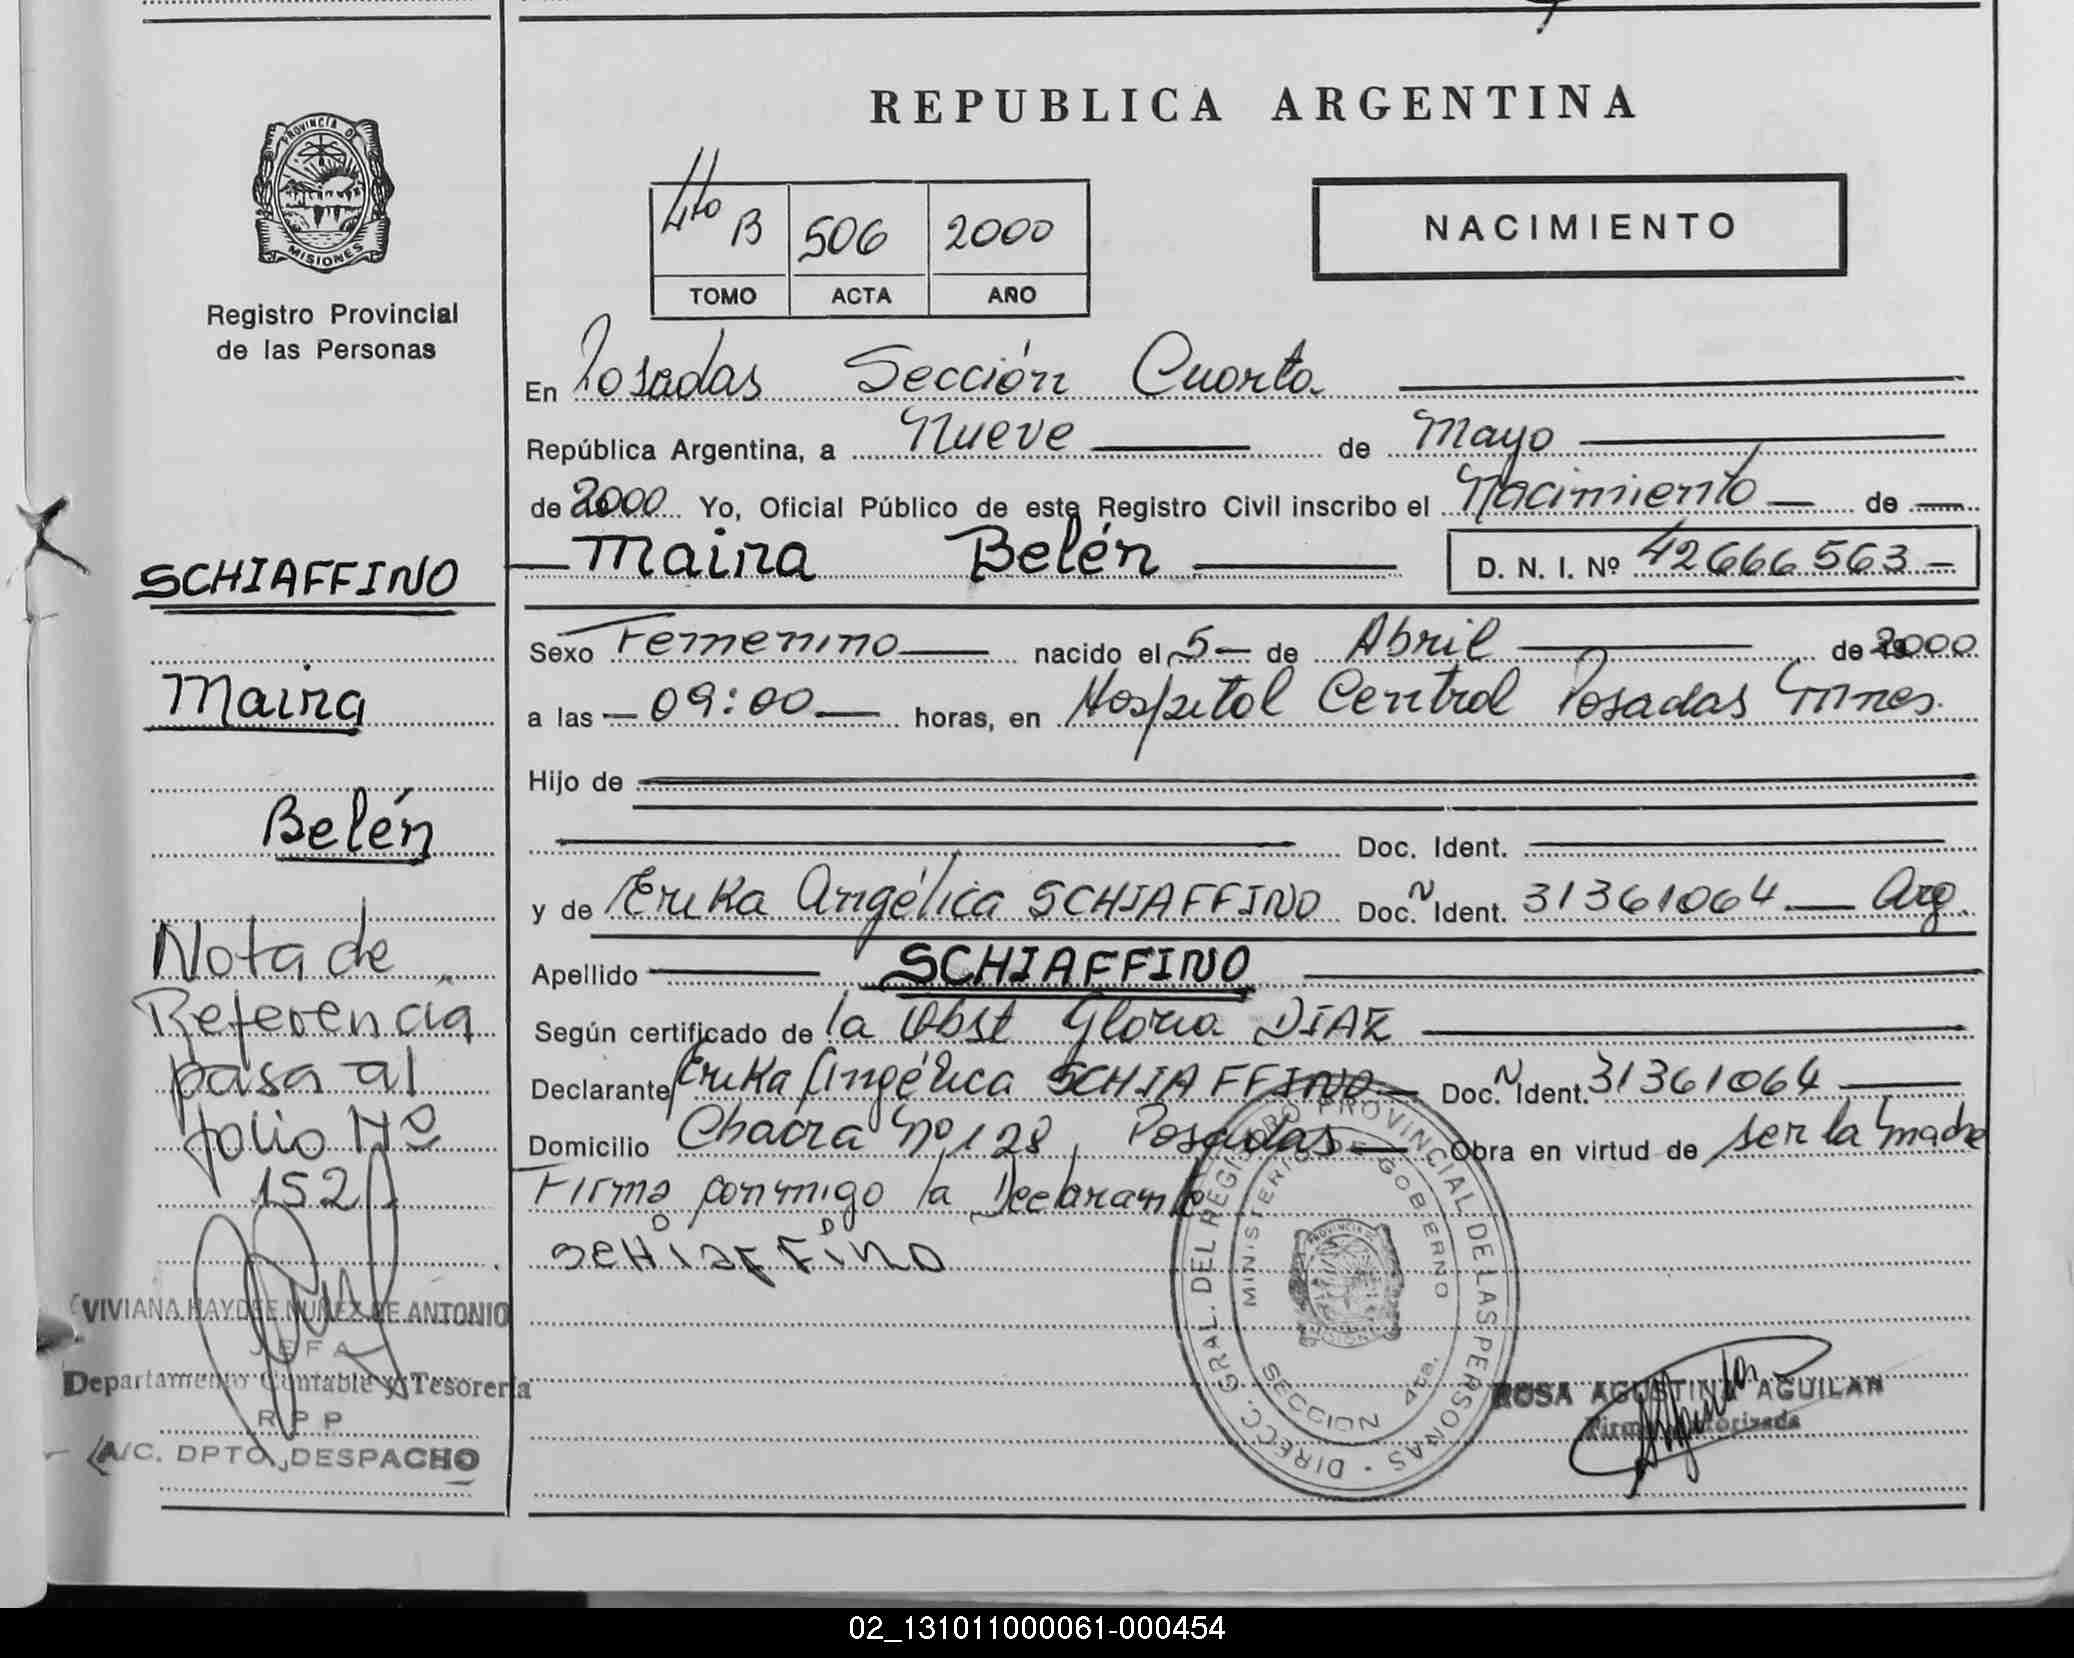 REPUBLICA ARGENTINA
PROVINCIA DE
MISIONES
Registro Provincial
de las Personas
4to B 506 2000
TOMO ACTA AÑO
NACIMIENTO
En Posadas Sección Cuarta
República Argentina, a Nueve de Mayo
de 2000 Yo, Oficial Público de este Registro Civil inscribo el Nacimiento de
Maira Belén D. N. I. Nº 42666563
Sexo Femenino nacido el 5 de Abril de 2000
a las 09:00 horas, en Hospital Central Posadas Mnes.
Hijo de
Doc. Ident.
y de Erika Angélica SCHIAFFINO Doc. N Ident. 31361064 Arg.
Apellido SCHIAFFINO
Según certificado de la Obst Gloria DIAZ
Declarante Erika Angélica SCHIAFFINO Doc. N Ident. 31361064
Domicilio Chacra Nº 128, Posadas Obra en virtud de ser la madre
Firma conmigo la Declarante
SCHiaFFiNO
SCHIAFFINO
Maira
Belén
Nota de
Referencia
pasa al
folio Nº
152
VIVIANA HAYDEE NUÑEZ DE ANTONIO
JEFA
Departamento Contable y Tesorería
R P P
A/C. DPTO. DESPACHO
DIRECC. GRAL. DEL REGISTRO PROVINCIAL DE LAS PERSONAS
MINISTERIO DE GOBIERNO
PROVINCIA DE
MISIONES
SECCION 4ta.
ROSA AGUSTINA AGUILAR
Firma Autorizada
02_131011000061-000454